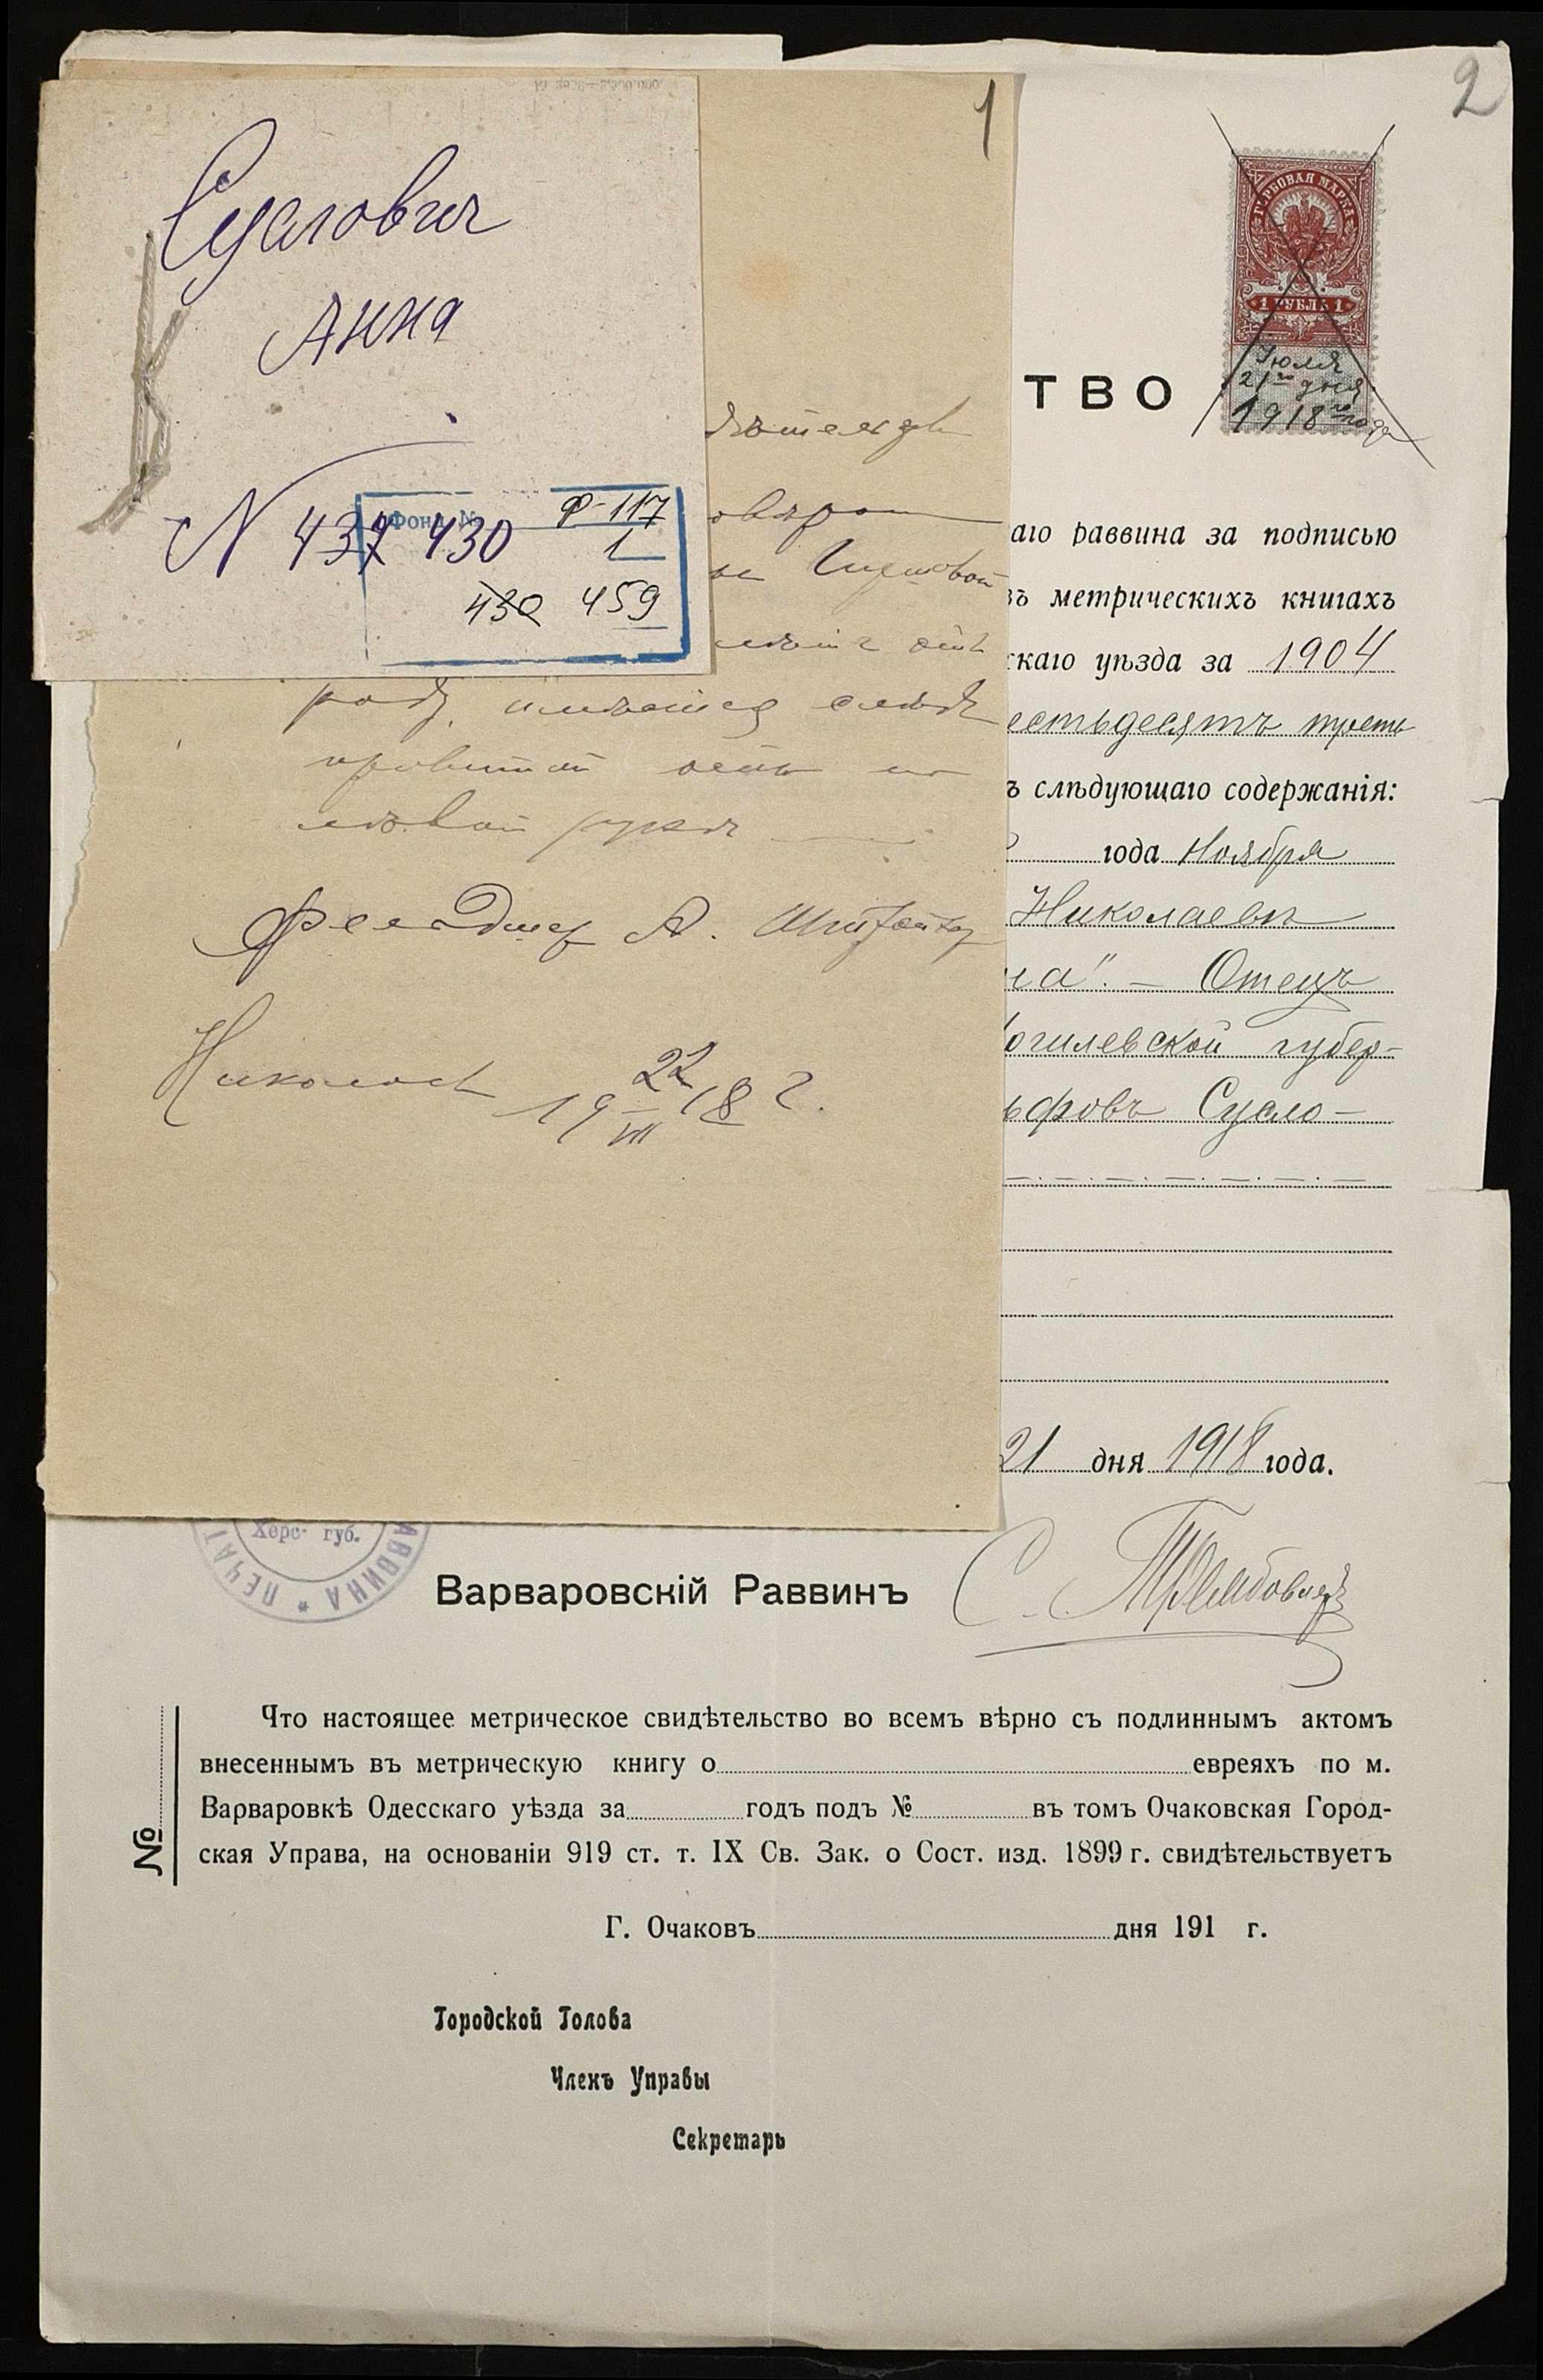 Суслович
Анна
N 437 430
Фонд №
Ф-117
1
430 459
1
овърош
рода, имѣется слѣдъ
привитой оспы на
лѣвой рукѣ
Фельдшер А.
Николаевъ 19 22/VII 18 г.
2
ГЕРБОВАЯ МАРКА
1 РУБЛЬ 1
Iюля
21го дня
1918го года
ТВО
аго раввина за подписью
въ метрическихъ книгахъ
скаго уѣзда за 1904
естьдесятъ треть
ъ слѣдующаго содержанія:
года Ноября
Николаевѣ
на". — Отецъ
огилевской губер-
ьфовъ Сусло-
21 дня 1918 года.
Херс. губ.
РАВВИНА * ПЕЧАТ
Варваровскій Раввинъ
Что настоящее метрическое свидѣтельство во всемъ вѣрно съ подлиннымъ актомъ
внесеннымъ въ метрическую книгу о евреяхъ по м.
Варваровкѣ Одесскаго уѣзда за годъ подъ № въ томъ Очаковская Город-
ская Управа, на основаніи 919 ст. т. IX Св. Зак. о Сост. изд. 1899 г. свидѣтельствуетъ
№
Г. Очаковъ дня 191 г.
Городской Голова
Членъ Управы
Секретарь